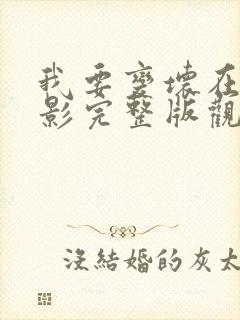 我要變壞在
影完整版觀
沒結婚的灰太